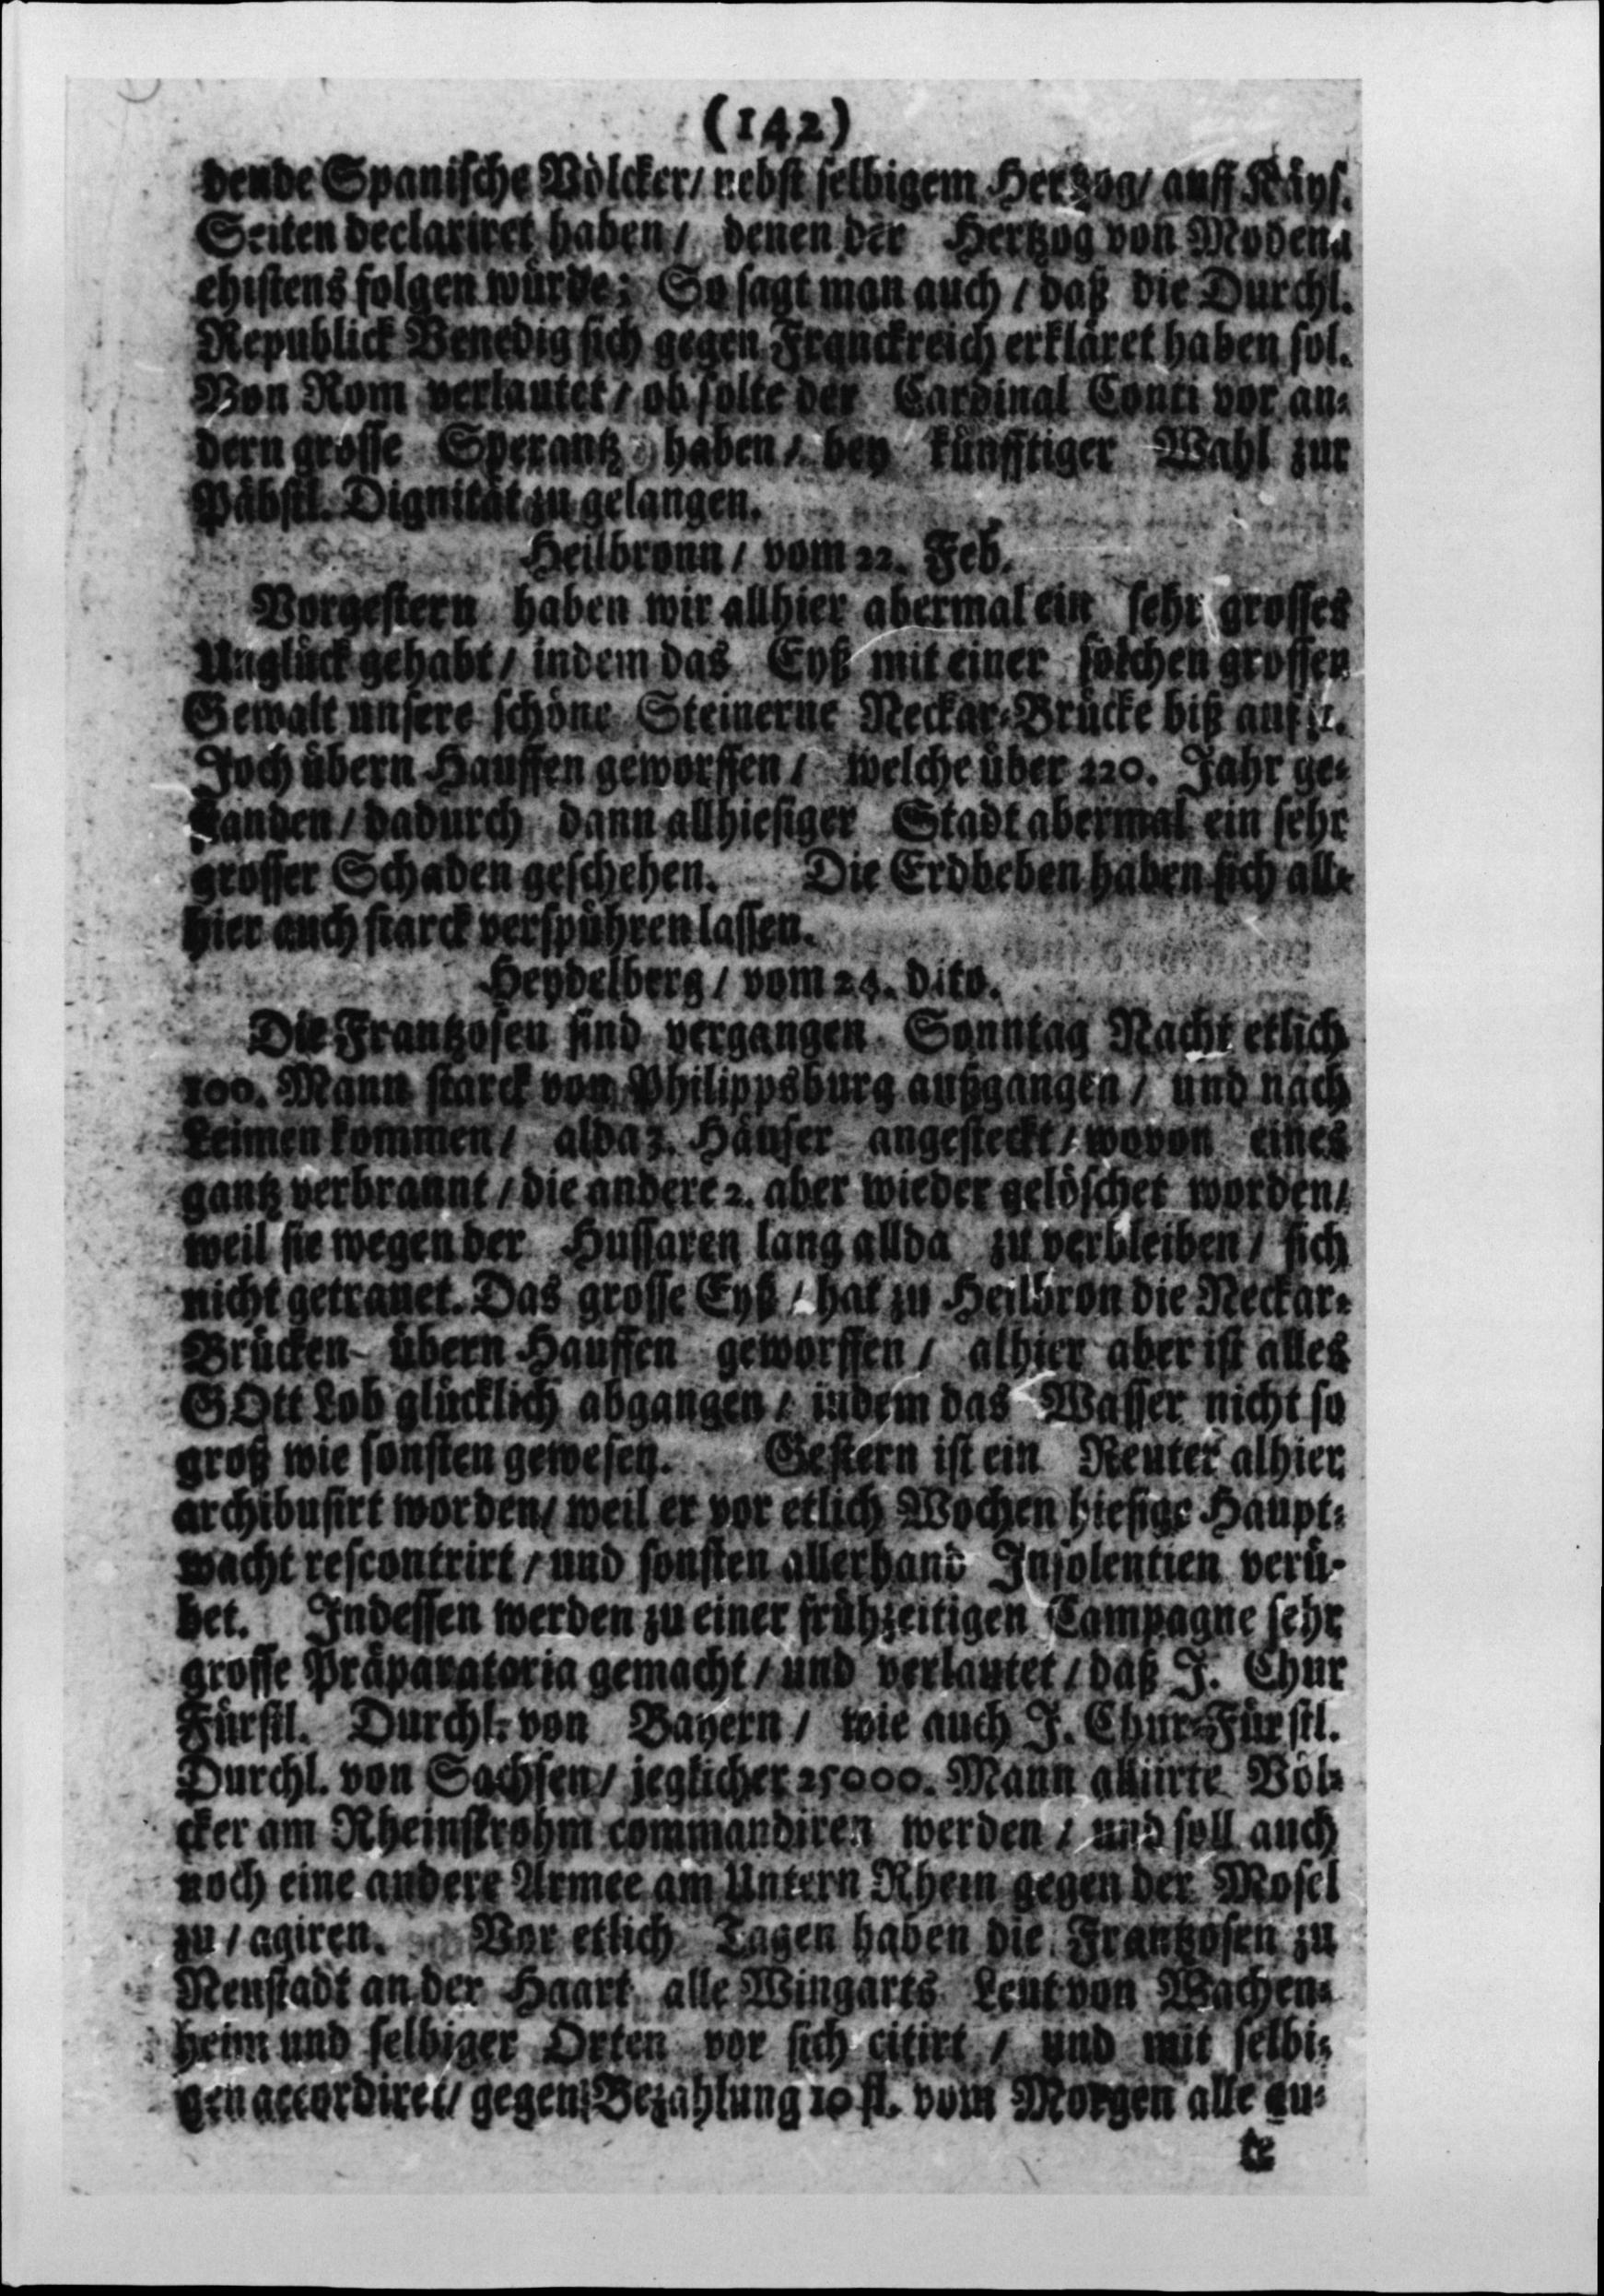 (142)
dende Spanische Völcker/ nebst selbigem Hertzog/ auff Käys.
Seiten declariret haben/ denen der Hertzog von Modena
ehistens folgen würde; So sagt man auch / daß die Durchl.
Republick Venedig sich gegen Franckreich erkläret haben sol.
Von Rom verlautet / ob solte der Cardinal Conti vor an-
dern grosse Sperantz haben / bey künfftiger Wahl zur
Päbstl. Dignität zu gelangen.
Heilbronn / vom 22. Feb.
Vorgestern haben wir allhier abermal ein sehr grosses
Unglück gehabt / indem das Eyß mit einer solchen grossen
Gewalt unsere schöne Steinerne Neckar-Brücke biß auf
Joch übern Hauffen geworffen / welche über 220. Jahr ge-
standen / dadurch dann allhiesiger Stadt abermal ein sehr
grosser Schaden geschehen. Die Erdbeben haben sich all-
hier auch starck verspühren lassen.
Heydelberg / vom 24. dito.
Die Frantzosen sind vergangen Sonntag Nacht etlich
100. Mann starck von Philippsburg außgangen / und nach
Leimen kommen / alda 3. Häuser angesteckt / wovon eines
gantz verbrannt / die andere 2. aber wieder gelöschet worden /
weil sie wegen der Hussaren lang allda zu verbleiben / sich
nicht getrauet. Das grosse Eyß / hat zu Heilbron die Neckar-
Brücken übern Hauffen geworffen / alhier aber ist alles
GOtt Lob glücklich abgangen / indem das Wasser nicht so
groß wie sonsten gewesen. Gestern ist ein Reuter alhier
archibusirt worden/ weil er vor etlich Wochen hiesige Haupt-
wacht rescontrirt / und sonsten allerhand Insolentien verü-
bet. Indessen werden zu einer frühzeitigen Campagne sehr
grosse Präparatoria gemacht / und verlautet / daß J. Chur
Fürstl. Durchl. von Bayern / wie auch J. Chur-Fürstl.
Durchl. von Sachsen / jeglicher 25000. Mann alliirte Völ-
cker am Rheinstrohm commandiren werden / und soll auch
noch eine andere Armee am Untern Rhein gegen der Mosel
zu / agiren. Vor etlich Tagen haben die Frantzosen zu
Neustadt an der Haart alle Wingarts Leut von Wachen-
heim und selbiger Orten vor sich citirt / und mit selbi-
gen accordiret/ gegen Bezahlung 10 fl. vom Morgen alle gu-
te